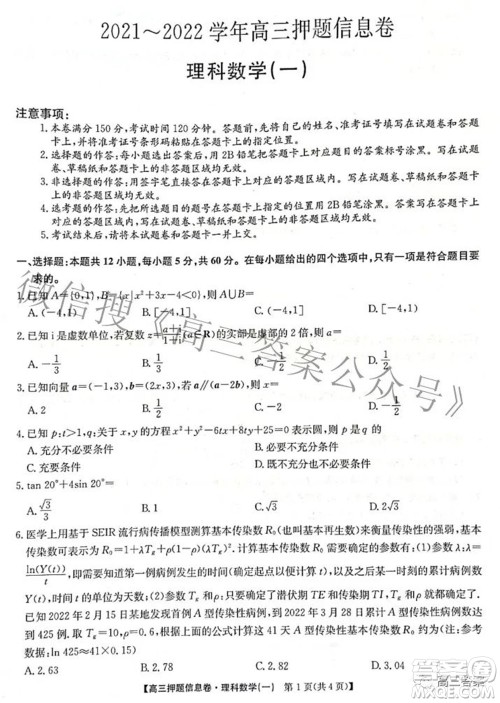 2021～2022学年高三押题信息卷
理科数学(一)
注意事项：
1. 本卷满分150分，考试时间120分钟。答题前，先将自己的姓名、准考证号填写在试题卷和答题
卡上，并将准考证号条形码粘贴在答题卡上的指定位置。
2. 选择题的作答：每小题选出答案后，用2B铅笔把答题卡上对应题目的答案标号涂黑。写在试题
卷、草稿纸和答题卡上的非答题区域均无效。
3. 非选择题的作答：用签字笔直接写在答题卡上对应的答题区域内。写在试题卷、草稿纸和答题卡
上的非答题区域均无效。
4. 选考题的作答：先把所选题目的题号在答题卡上指定的位置用2B铅笔涂黑。答案写在答题卡上
对应的答题区域内，写在试题卷、草稿纸和答题卡上的非答题区域均无效。
5. 考试结束后，请将本试题卷和答题卡一并上交。
一、选择题：本题共12小题，每小题5分，共60分。在每小题给出的四个选项中，只有一项是符合题目要
求的。
1. 已知A={0,1}，B={x|x²+3x-4<0}，则A∪B=
A. (-4,1) B. (-4,1] C. (-1,4) D. [-4,1]
2. 已知i是虚数单位，若复数z=(a+i)/(1+i)(a∈R)的实部是虚部的2倍，则a=
A. -1/3 B. 1/3 C. 1/2 D. -1/2
A. 2 B. -2 C. 1/2 D. -1/2
4. 已知p:t>1，q:关于x，y的方程x²+y²-6tx+8ty+25=0表示圆，则p是q的
A. 充分不必要条件 B. 必要不充分条件
C. 充要条件 D. 既不充分也不必要条件
5. tan 20°+4sin 20°=
A. √3/2 B. 1 C. √2 D. √3
6. 医学上用基于SEIR流行病传播模型测算基本传染数R₀(也叫基本再生数)来衡量传染性的强弱，基
本传染数可表示为R₀=1+λT_g+ρ(1-ρ)(λT_g)². 确定基本传染数R₀需要确定以下参数：(1)参数λ：λ=
ln(Y(t))/t，即需要知道自第一例病例发病时间(确定起点以便计算t)，以及某时刻t累计病例数
已知2022年2月15日某地发现首例A型传染性病例，到2022年3月28日累计A型传染性病例数达
到425例. 取T_g=10，ρ=0.2，根据上面的公式计算这41天A型传染性病的基本传染数R₀约为
A. 2.63 B. 2.78 C. 2.82 D. 3.04
【高三押题信息卷·理科数学(一) 第1页(共4页)】
微信搜《高三答案公众号》
高三答案